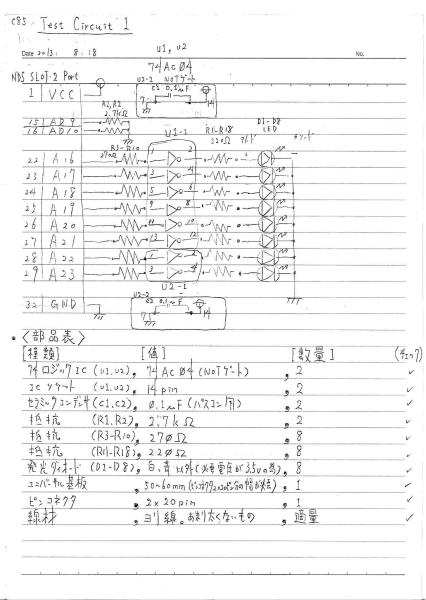 C85 Test Circuit 1
Date 2013 : 8 : 18
No.
U1, U2
74AC04
NDS SLOT-2 Port
U2-2 NOTゲート
C1 0.1μF
7
14
1 VCC
R1, R2
2.7kΩ
15 AD9
16 AD10
U1-1
R11-R18
220Ω
D1-D8
LED
R3-R10
270Ω
22 A16 1 2
23 A17 3 4
24 A18 5 6
25 A19 9 8
26 A20 11 10
27 A21 13 12
28 A22 1 2
29 A23 3 4
U2-1
32 GND
U2-2
0.1μF
7
14
・〈部品表〉
[種類] [値] [数量] (チェック)
74ロジックIC (U1,U2), 74AC04 (NOTゲート), 2 ✓
ICソケット (U1,U2), 14pin, 2 ✓
セラミックコンデンサ (C1,C2), 0.1μF (パスコン用), 2 ✓
抵抗 (R1,R2), 2.7kΩ, 2 ✓
抵抗 (R3-R10), 270Ω, 8 ✓
抵抗 (R11-R18), 220Ω, 8 ✓
発光ダイオード (D1-D8), 白,青以外(必要電圧が3.5Vの為), 8 ✓
ユニバーサル基板, 50~60mm, 1 ✓
ピンコネクタ, 2×20pin, 1 ✓
線材, ヨリ線。あまり太くないもの, 適量 ✓